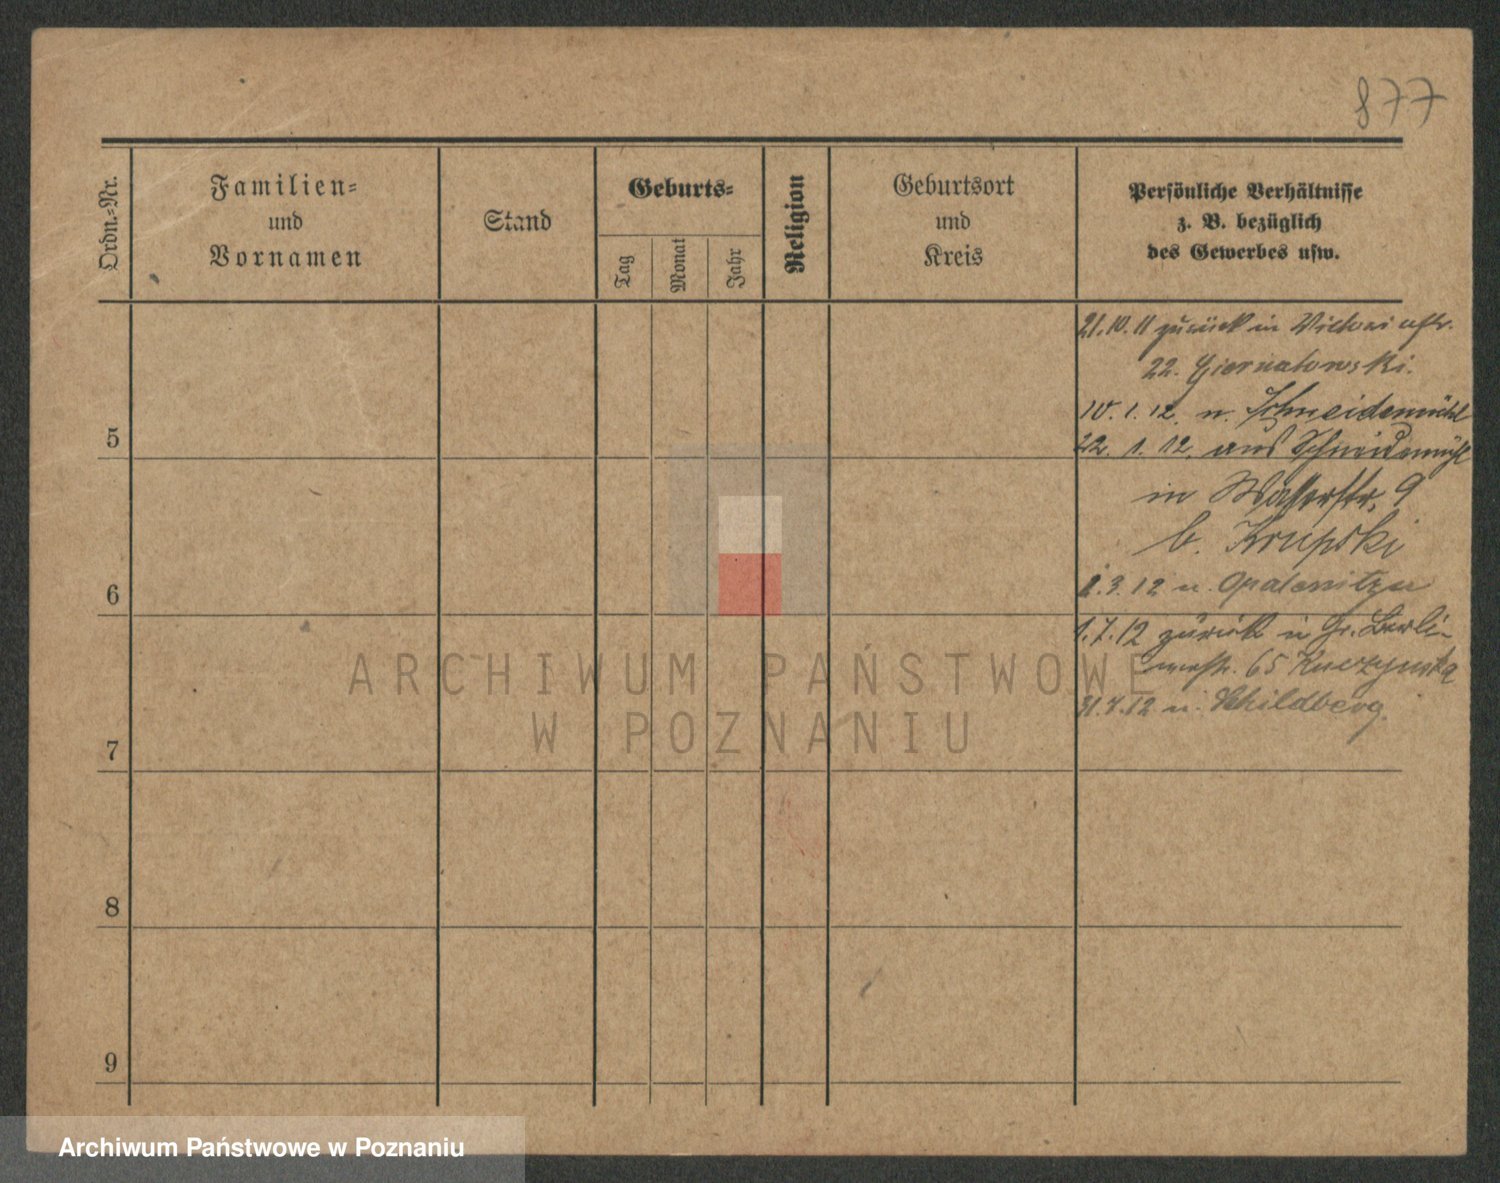 877
Ordn.-Nr.
Familien-
und
Vornamen
Stand
Geburts-
Tag
Monat
Jahr
Religion
Geburtsort
und
Kreis
Persönliche Verhältnisse
z. B. bezüglich
des Gewerbes usw.
21.10.11 zurück in Victoriastr.
22.
10.1.12. n. Schneidemühl
22. 1. 12. aus Schneidemühl
5
in Wasserstr. 9
b. Krupski
.3.12 n. Opalenitza
6
1.7.12 zurück in Gr. Berli-
nerstr. 65
31.7.12 n. Schildberg.
7
8
9
ARCHIWUM PAŃSTWOWE
W POZNANIU
Archiwum Państwowe w Poznaniu